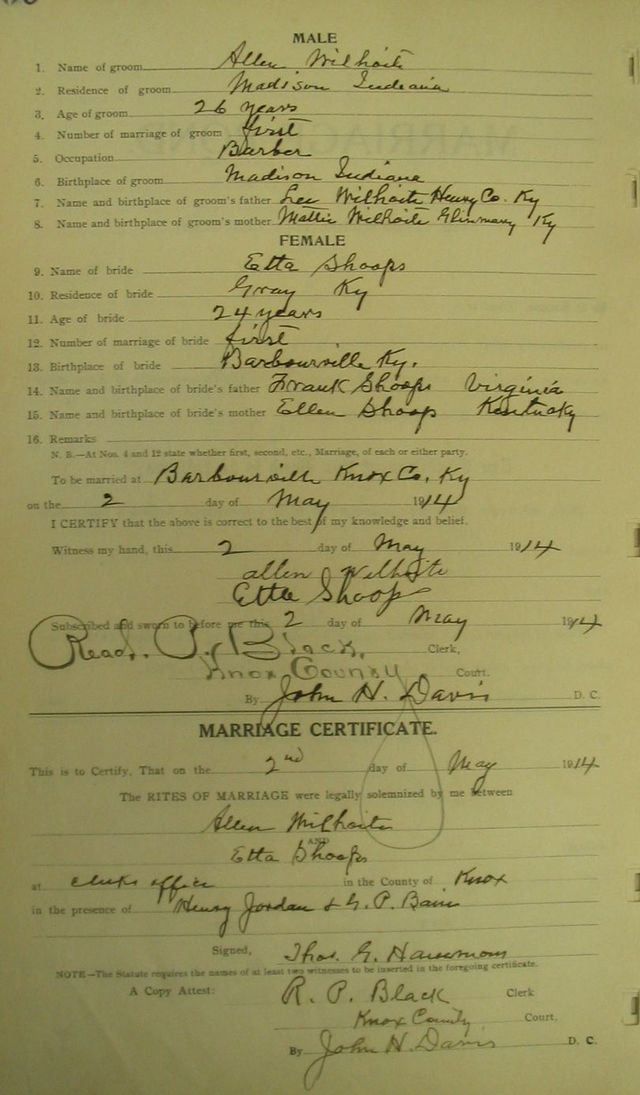 MALE
1. Name of groom Allen Wilhoite
2. Residence of groom Madison Indiana
3. Age of groom 26 years
4. Number of marriage of groom first
5. Occupation Barber
6. Birthplace of groom Madison Indiana
7. Name and birthplace of groom's father Lee Wilhoite Henry Co. Ky
8. Name and birthplace of groom's mother Mattie Wilhoite Ky
FEMALE
9. Name of bride Etta Shoops
10. Residence of bride Gray Ky
11. Age of bride 24 years
12. Number of marriage of bride first
13. Birthplace of bride Barbourville Ky.
14. Name and birthplace of bride's father Frank Shoops Virginia
15. Name and birthplace of bride's mother Ellen Shoop Kentucky
16. Remarks
N. B.—At Nos. 4 and 12 state whether first, second, etc., Marriage, of each or either party.
To be married at Barbourville Knox Co. Ky
on the 2 day of May 1914
I CERTIFY that the above is correct to the best of my knowledge and belief.
Witness my hand, this 2 day of May 1914
allen Wilhoite
Etta Shoops
Subscribed and sworn to before me this 2 day of May 1914
Read. P. Black, Clerk,
Knox County Court.
By John H. Davis D. C.
MARRIAGE CERTIFICATE.
This is to Certify, That on the 2nd day of May 1914
The RITES OF MARRIAGE were legally solemnized by me between
Allen Wilhoite
AND
Etta Shoops
at clerks office in the County of Knox
in the presence of Henry Jordan & G. P. Bain
Signed, Thos. G. Hammons
NOTE—The Statute requires the names of at least two witnesses to be inserted in the foregoing certificate.
A Copy Attest: R. P. Black Clerk
Knox County Court,
By John H. Davis D. C.